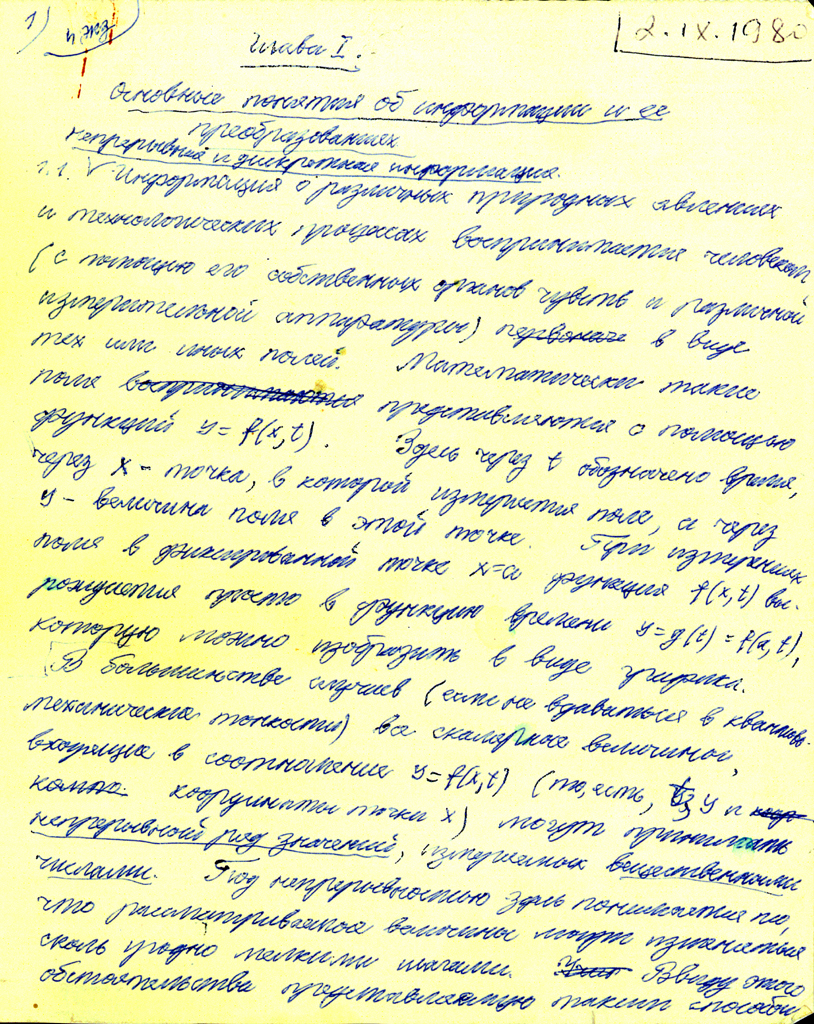 1)
2.IX.1980
Глава I.
Основные понятия об информации и ее
преобразованиях
непрерывная и дискретная информация.
1.1. V Информация о различных природных явлениях
и технологических процессах воспринимается человеком
(с помощью его собственных органов чувств и различной
измерительной аппаратуры) первонача в виде
тех или иных полей. Математически такие
поля воспринимаются представляются с помощью
функций y = f(x,t). Здесь через t обозначено время,
через x - точка, в которой измеряется поле, а через
y - величина поля в этой точке. При измерениях
поля в фиксированной точке x=a функция f(x,t) вы-
рождается просто в функцию времени y=g(t) = f(a,t),
которую можно изобразить в виде графика.
В большинстве случаев (если не вдаваться в квантово-
механические тонкости) все скалярные величины,
входящие в соотношение y=f(x,t) (то, есть, t, y и коор
координаты точки x) могут принимать
непрерывный ряд значений, измеряемых вещественными
числами. Под непрерывностью здесь понимается то,
что рассматриваемые величины могут изменяться
сколь угодно мелкими шагами. Ввиду этого
обстоятельства представляемую таким способом